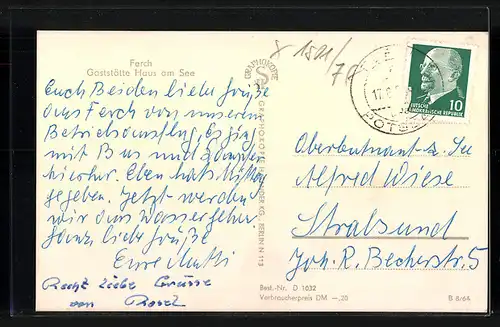 Ferch
Gaststätte Haus am See
Euch Beiden liebe Grüße
aus Ferch von unserem
Betriebsausflug. Es ging
mit Bus und Dampfer
hierher. Eben hats Mittag
gegeben. Jetzt werden
wir ans Wasser gehen
Ganz liebe Grüße
Eure Mutti
Recht liebe Grüsse
von
GRAPHOKOPIE
GRAPHOKOPIE H. SANDER KG. BERLIN N 113
17.8.
POTSDAM
10
DEUTSCHE
DEMOKRATISCHE REPUBLIK
Oberleutnant z. See
Alfred Wiese
Stralsund
Joh. R. Becherstr. 5
Best.-Nr. D 1032
Verbraucherpreis DM –,20
B 8/66